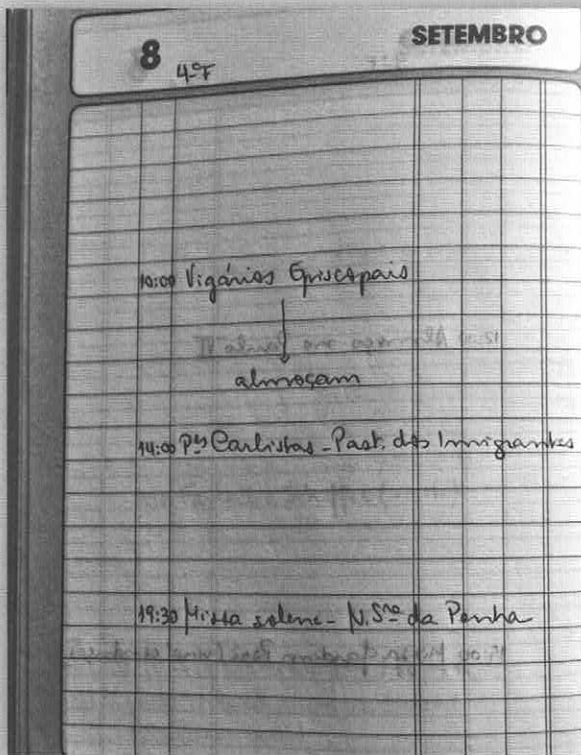 8 4ªF SETEMBRO
10:00 Vigários Episcopais
almoçam
14:00 Pes Carlistas - Past. dos Immigrantes
19:30 Missa solene - N. Sra da Penha